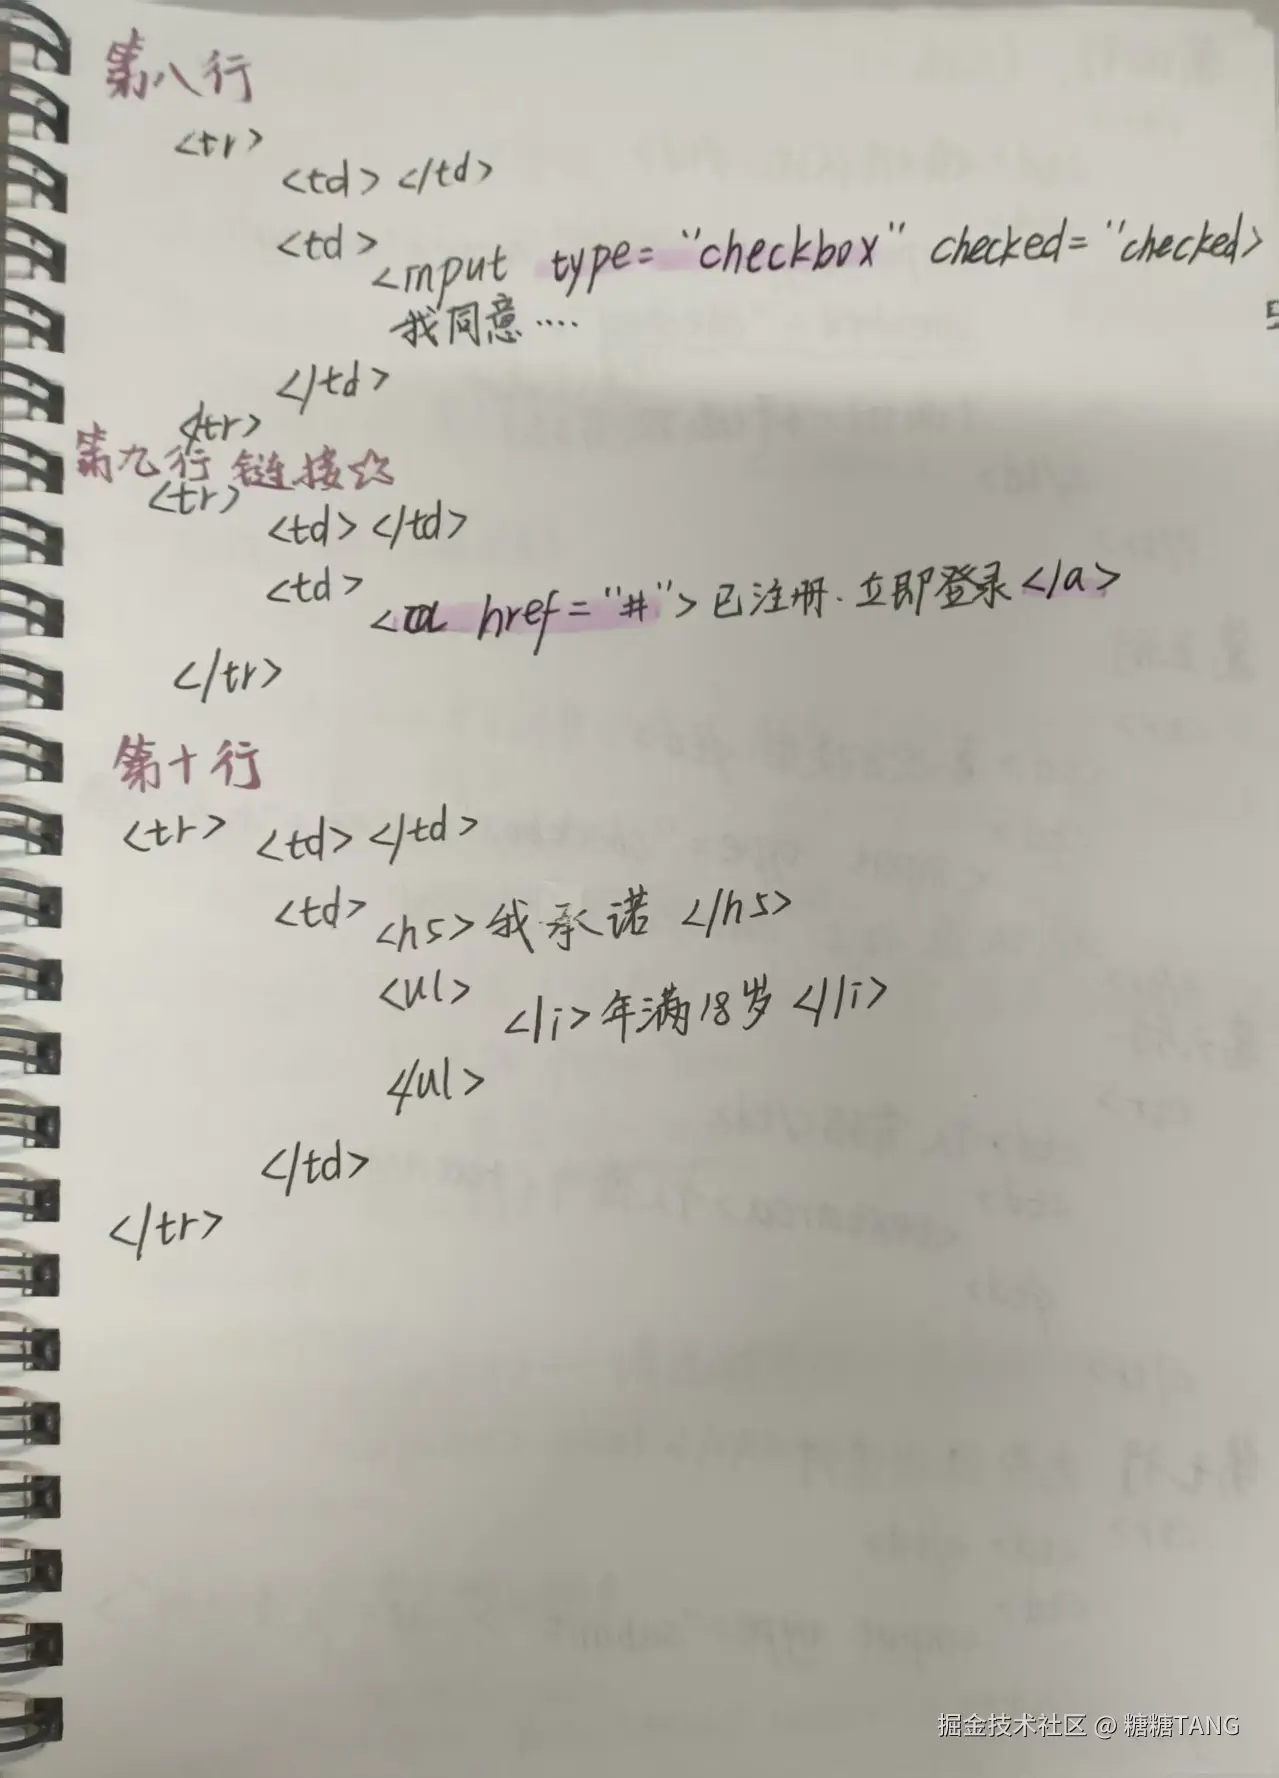 第八行
<tr>
<td></td>
<td>
<input type="checkbox" checked="checked>
我同意....
</td>
</tr>
第九行 链接☆
<tr>
<td></td>
<td>
<a href="#">已注册.立即登录</a>
</tr>
第十行
<tr> <td></td>
<td> <h5>我承诺</h5>
<ul>
</li>年满18岁</li>
</ul>
</td>
</tr>
掘金技术社区 @ 糖糖TANG